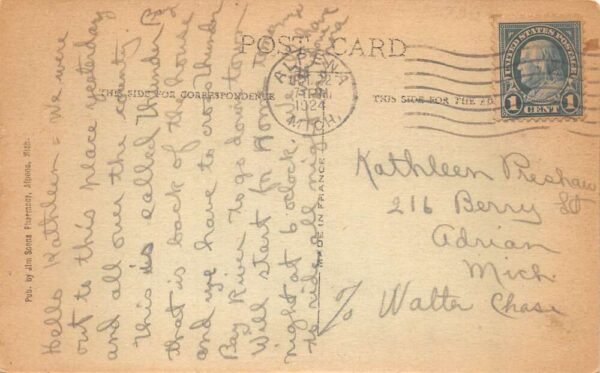 POST CARD
THIS SIDE FOR CORRESPONDENCE
THIS SIDE FOR THE AD
UNITED STATES POSTAGE
1 CENT 1
ALPENA
7 PM
1924
MICH.
MADE IN FRANCE
Pub. by Jim Sones Pharmacy, Alpena, Mich.
Hello Kathleen = We were
out to this place yesterday
and all over the county.
This is called Thunder Bay
that is back of the house
and we have to cross Thunder
Bay River to go down town
Will start for Home
night at 6 oclock.
to ride all night
To
Kathleen Preshaw
216 Berry St
Adrian
Mich
Walta Chase